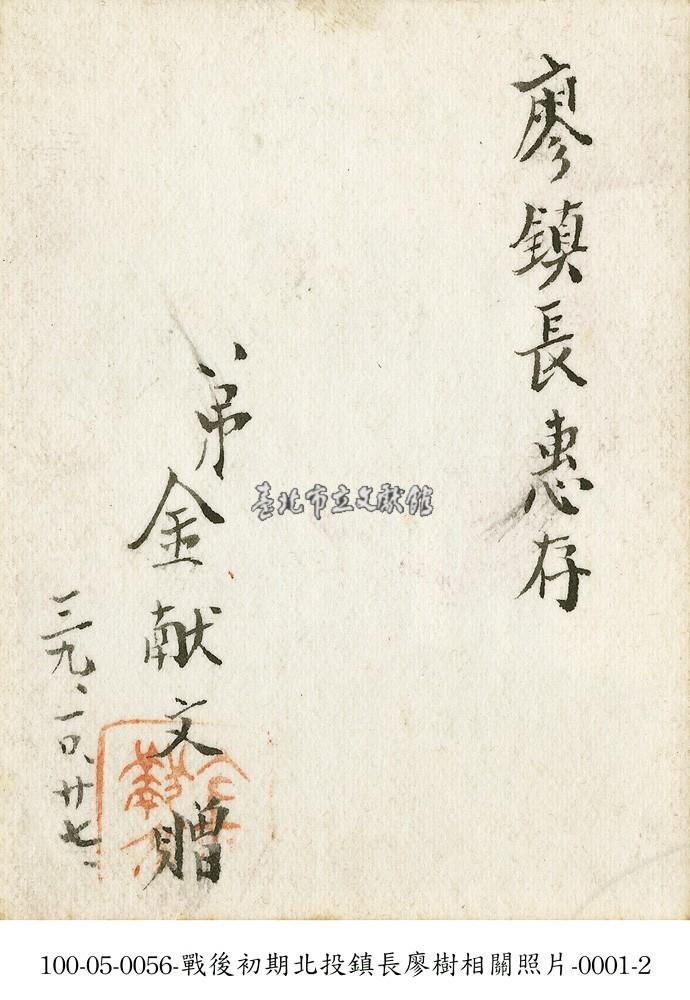 廖鎮長惠存
弟金献文贈
三九、一〇、廿七、
臺北市立文獻館
100-05-0056-戰後初期北投鎮長廖樹相關照片-0001-2